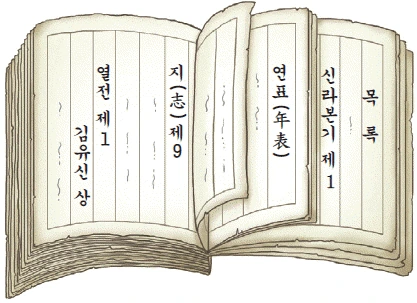 목록
신라본기 제1
연표(年表)
지(志)제9
열전 제1
김유신 상